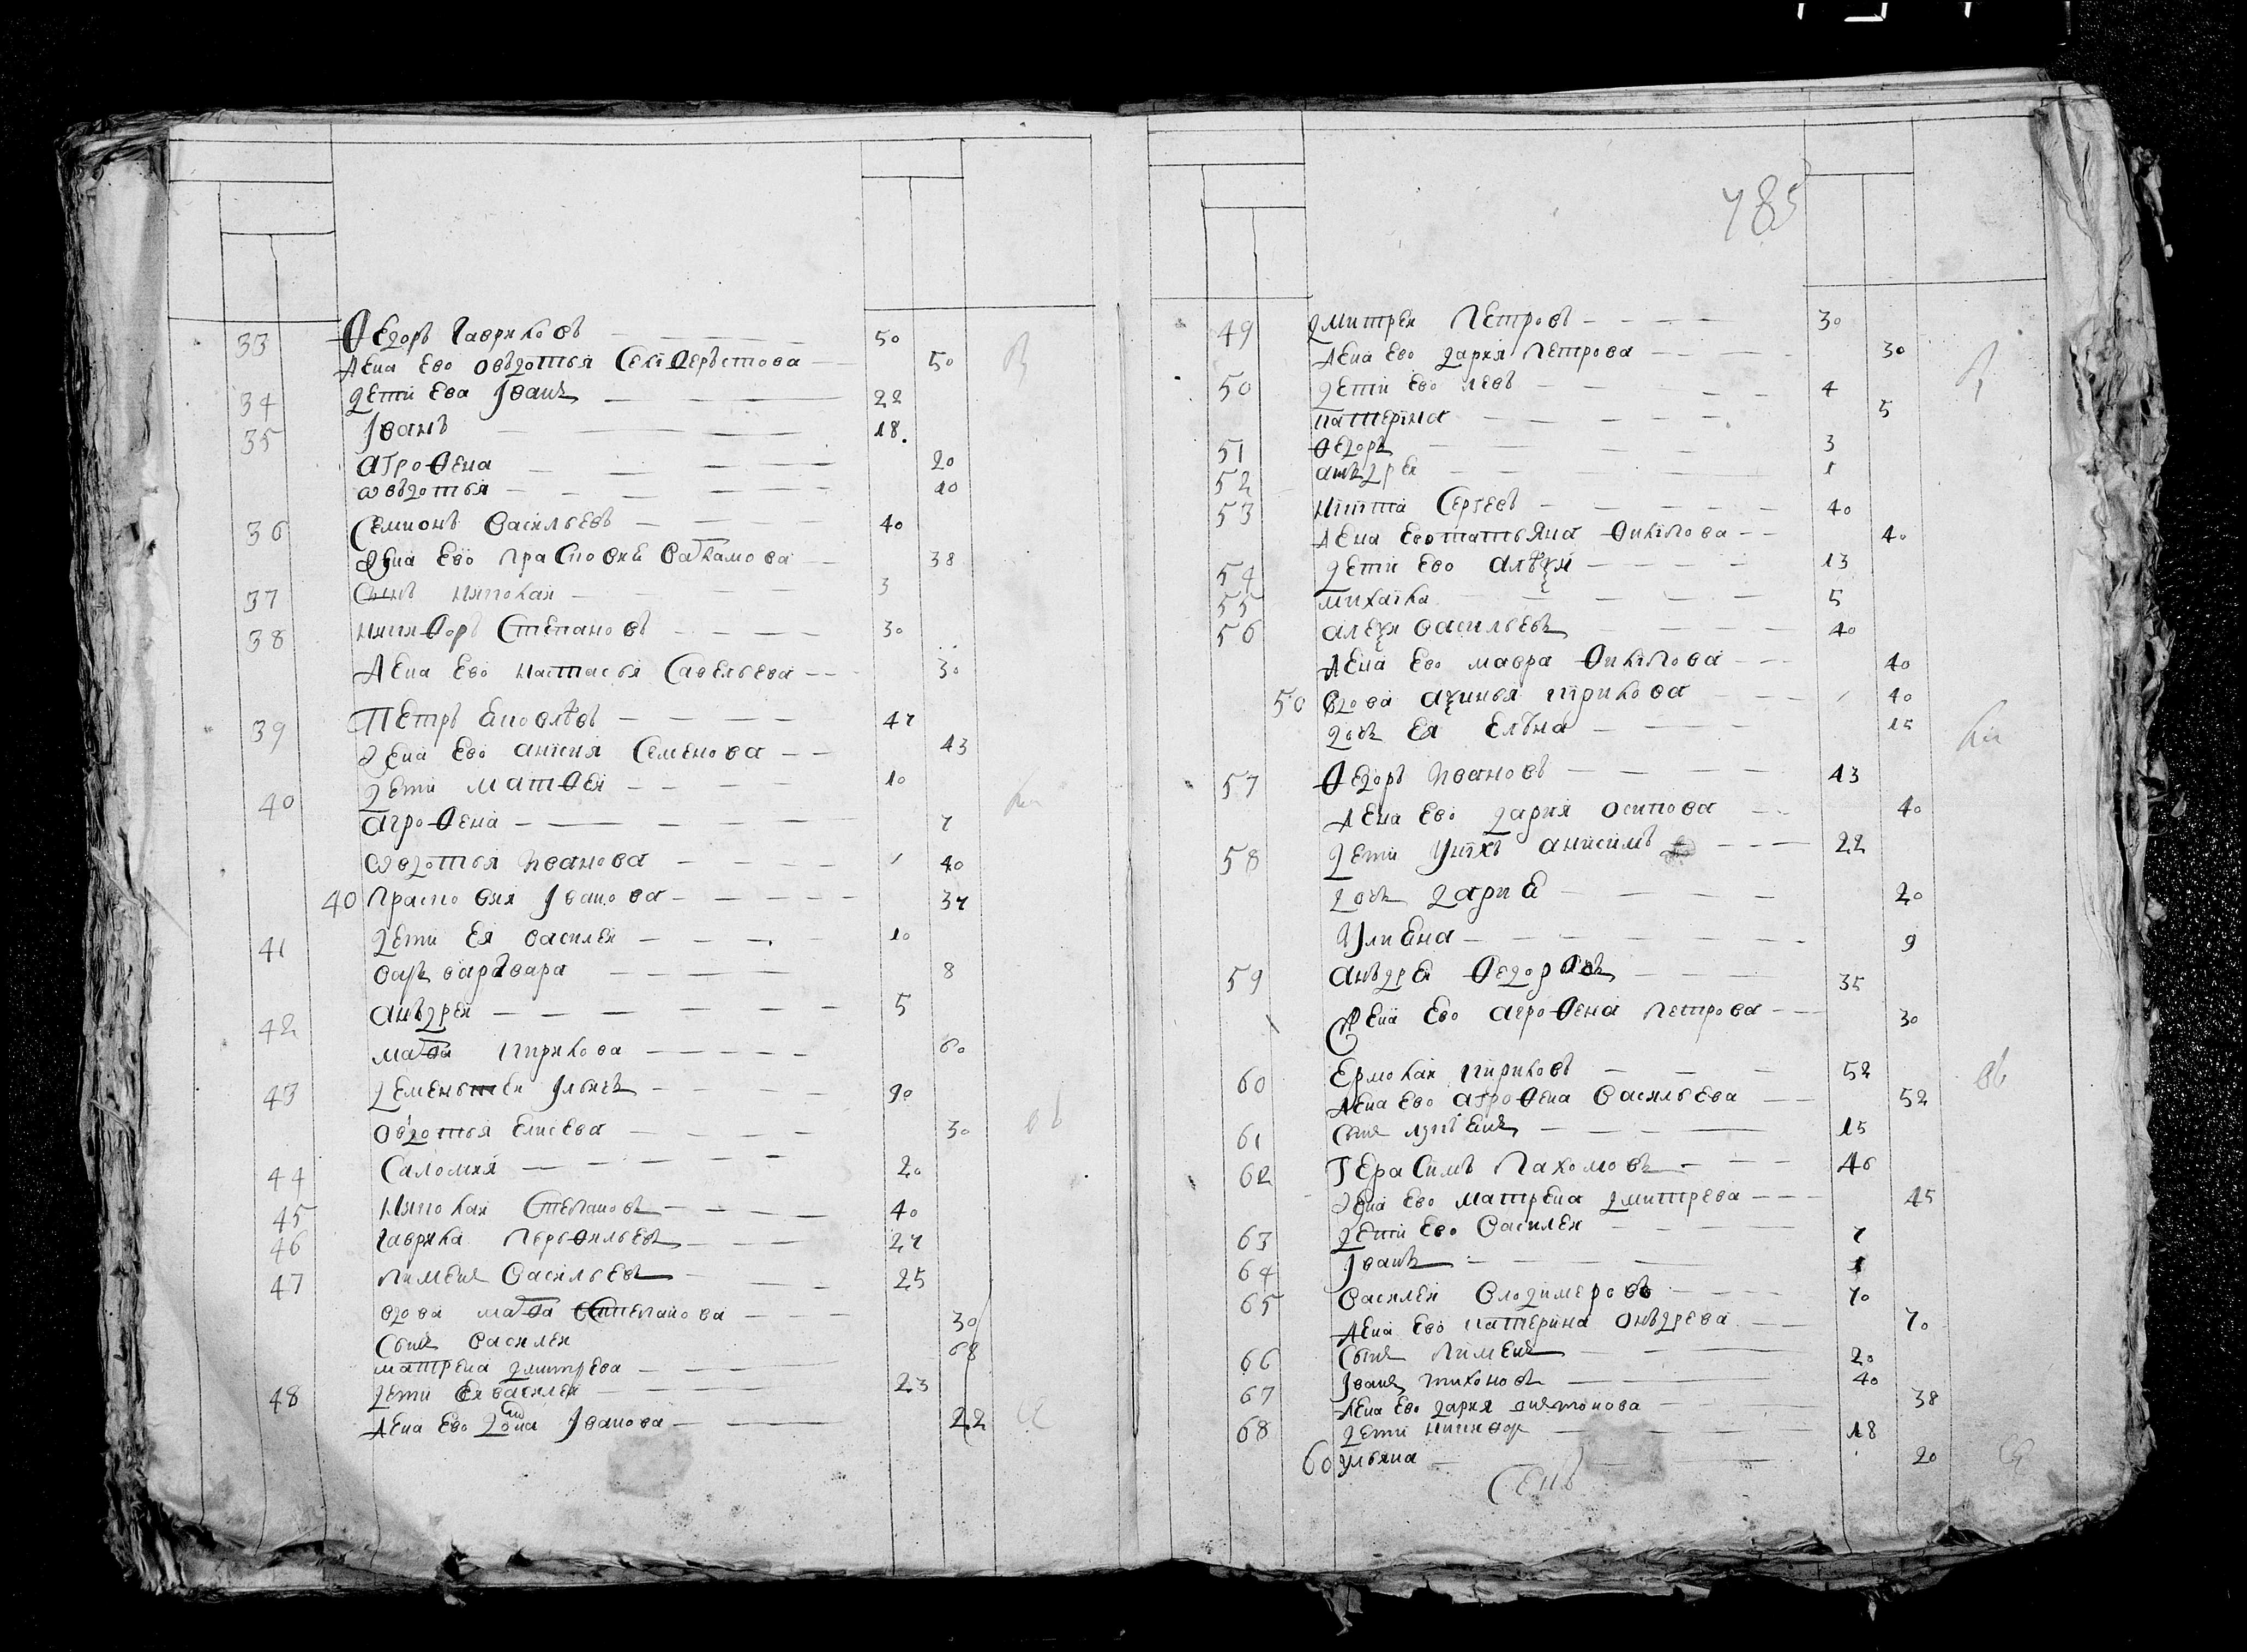 33 Ѳедоръ Гавриловъ 50
Жена ево Овъдотья Селиѳерьстова 50
34 дети ева Іванъ 22
35 Іванъ 18
агроѳена 20
овъдотья 10
36 Семионъ Васильевъ 40
Жена ево прасковия 38
37 Сынъ николай 3
38 никиѳоръ Степановъ 30
Жена ево настасья Савельева 30
39 Петръ яковлевъ 47
Жена ево анисия Семенова 43
40 дети матѳей 10
агроѳена 7
овдотья Иванова 40
40 Прасковия Іванова 37
41 дети ея василей 10
варъвара 8
42 анъдрей 5
кирилова 60
43 деменътей Ільичъ 90
овдотья Елисева 30
44 Саломия 20
45 николай Степановъ 40
46 гаврила 27
47 пименъ Васильевъ 25
вдова Степанова 30
Сынъ Василей 68
матрена дмитрева
48 дети ея василей 23
Жена ево Іванова 22
785
49 дмитрей Петровъ 30
Жена ево дария петрова 30
50 дети ево левъ 4
катерина 5
51 Ѳедоръ 3
52 анъдрей 1
53 никита Сергевъ 40
Жена ево татьяна Ѳилипова 40
54 дети ево алеѯей 13
55 михаила 5
56 алеѯей васильевъ 40
Жена ево мавра Ѳилипова 40
50 вдова аѯинья кирилова 40
дочь ея елена 15
57 Ѳедоръ Ивановъ 43
Жена ево дария осипова 40
58 дети у нихъ анисимъ 22
дочь дария 20
Улияна 9
59 анъдрей Ѳедоровъ 35
Жена ево агроѳена петрова 30
60 Ермолай кириловъ 52
Жена ево агроѳена Васильева 52
61 Сынъ 15
62 Герасимъ Пахомовъ 46
Жена ево матрена дмитрева 45
63 дети ево Василей 7
64 Іванъ 1
65 Василей Володимеровъ 70
Жена ево катерина Онъдрева 70
66 Сынъ Пименъ 20
67 Іванъ тихоновъ 40
Жена ево дария 38
68 дети никиѳоръ 18
60 ульяна 20